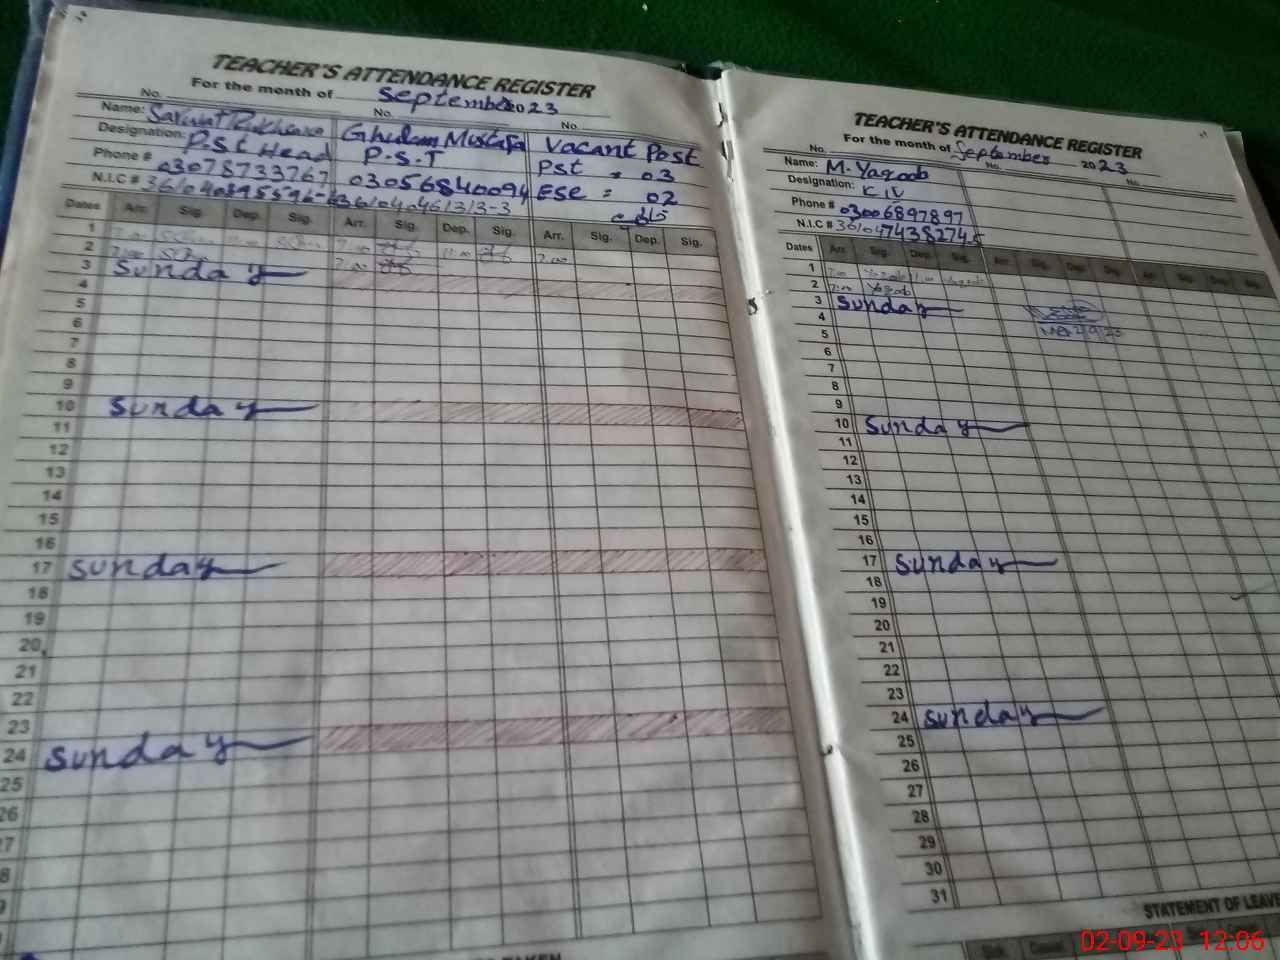 TEACHER'S ATTENDANCE REGISTER
For the month of September 2023
No. No. No.
Name: Ghulam Mustafa Vacant Post
Designation: P.S.t Head P.S.T Pst = 03
Phone # 03078733767 03056840094 ESE = 02
N.I.C #
Dates Arr. Sig. Dep. Sig. Arr. Sig. Dep. Sig. Arr. Sig. Dep. Sig.
1
2 7:00 7:00 11:00 7:00
3 Sunday
4
5
6
7
8
9
10 Sunday
11
12
13
14
15
16
17 Sunday
18
19
20
21
22
23
24 Sunday
25
26
27
28
TEACHER'S ATTENDANCE REGISTER
For the month of September 2023
No. No. No.
Name: M. Yaqoob
Designation: C IV
Phone # 03006897897
N.I.C #
Dates Arr. Sig. Dep. Sig. Arr. Sig. Dep. Sig. Arr. Sig. Dep. Sig.
1 7:00 Yaqoob 11:00 Yaqoob
2 7:00 Yaqoob
3 Sunday
4
5
6
7
8
9
10 Sunday
11
12
13
14
15
16
17 Sunday
18
19
20
21
22
23
24 Sunday
25
26
27
28
29
30
31
STATEMENT OF LEAVE
Sick Casual
TAKEN
02-09-23 12:06